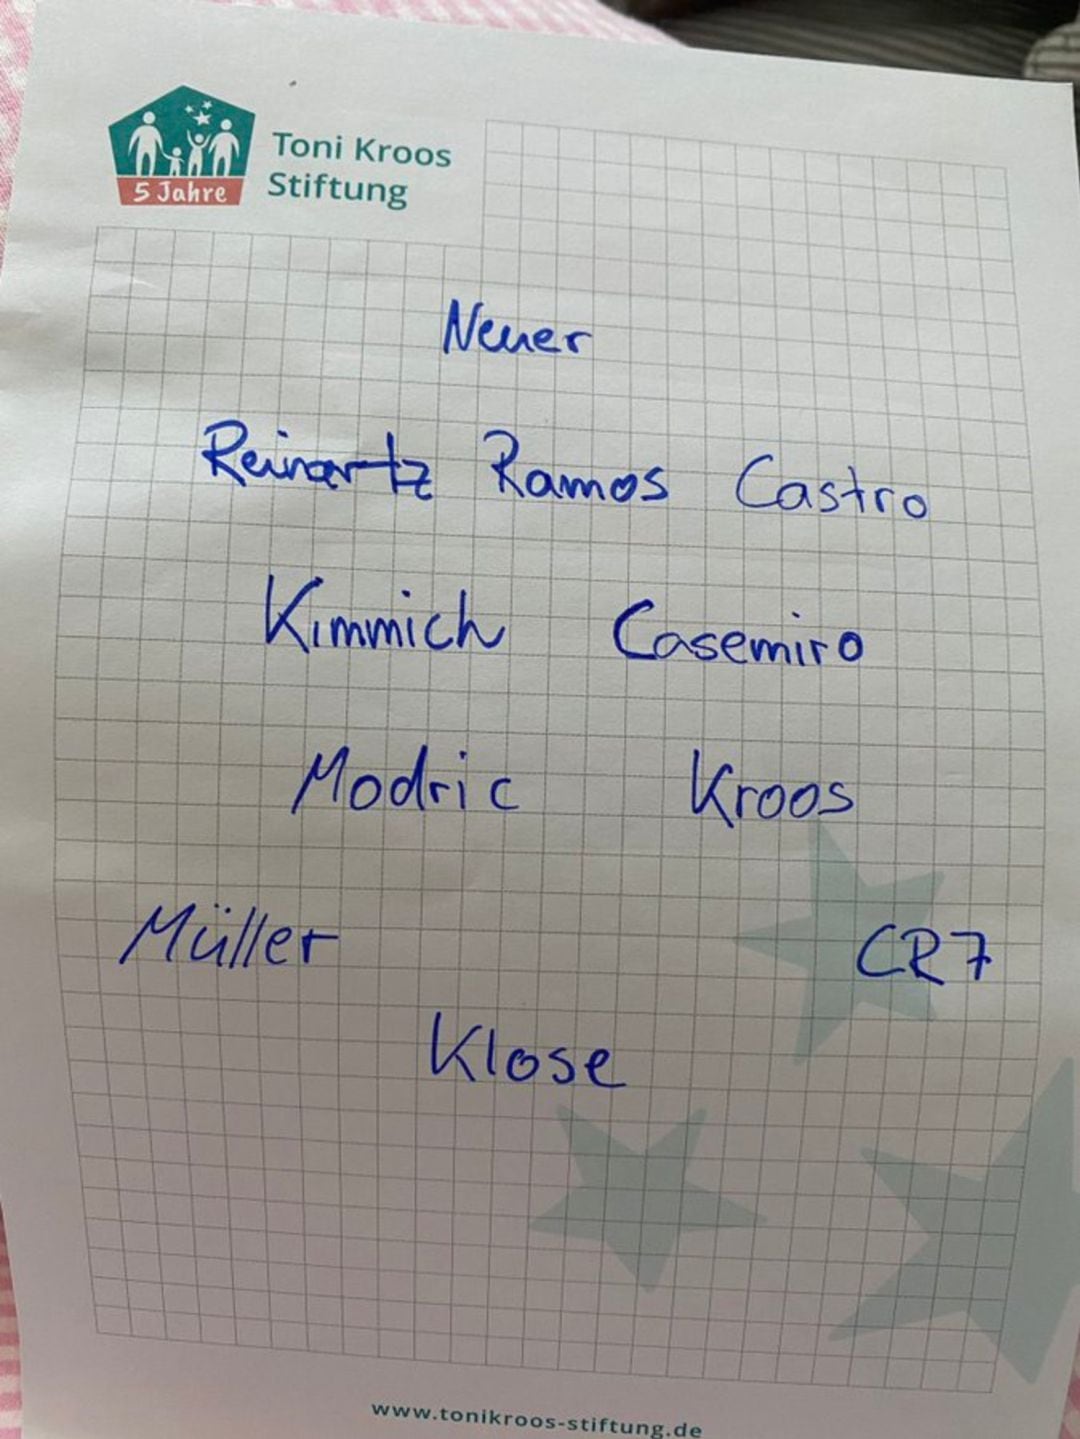 Toni Kroos
Stiftung
5 Jahre
Neuer
Reinartz Ramos Castro
Kimmich Casemiro
Modric Kroos
Müller CR7
Klose
www.tonikroos-stiftung.de